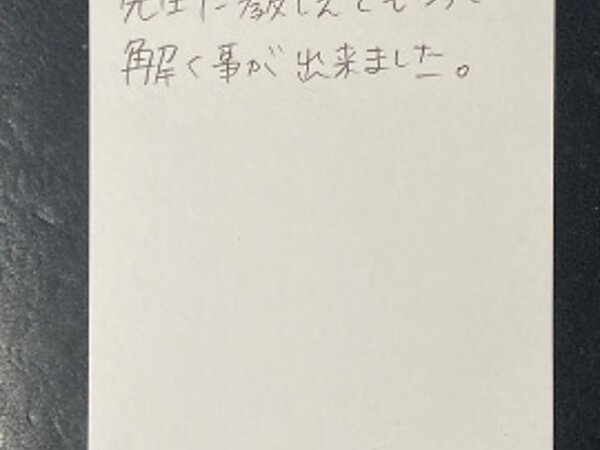 先生に教えてもらって
解く事が出来ました。